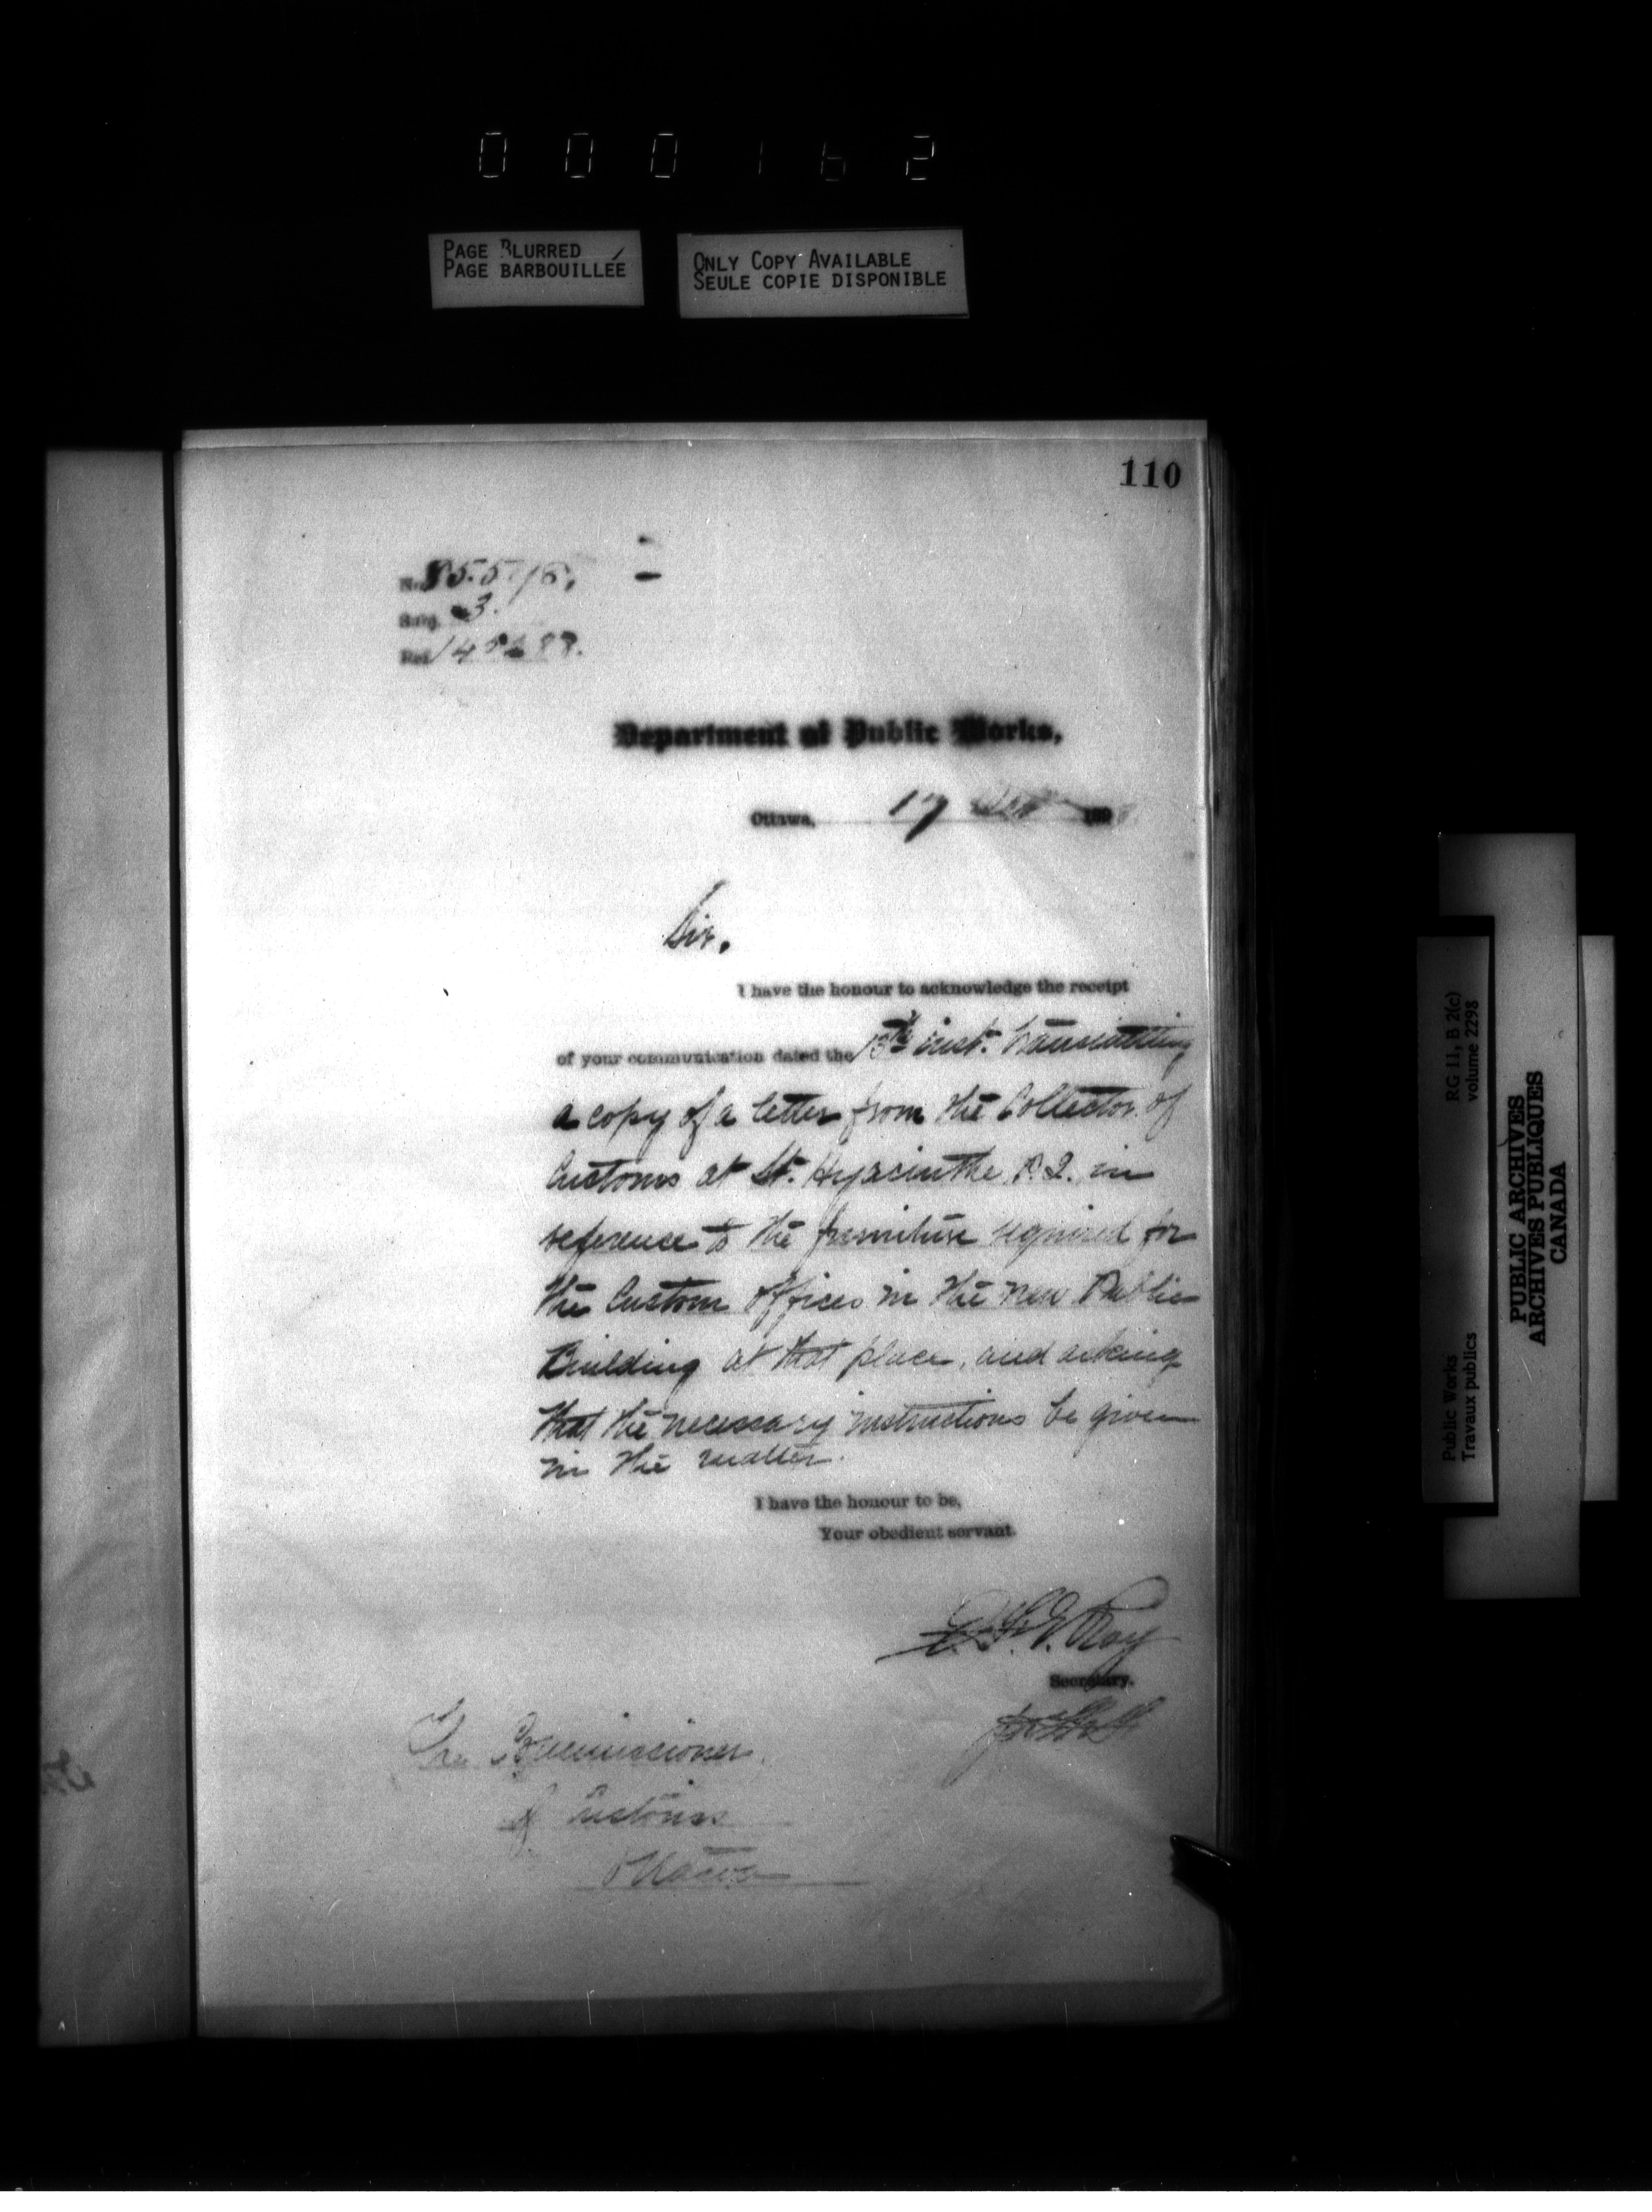 000162
PAGE BLURRED
PAGE BARBOUILLÉE
ONLY COPY AVAILABLE
SEULE COPIE DISPONIBLE
110
No.
Subj. 3.
Ref.
Department of Public Works,
Ottawa, 17 189
Sir,
I have the honour to acknowledge the receipt
of your communication dated the 13th inst. transmitting
a copy of a letter from the Collector of
Customs at St. Hyacinthe P.Q. in
reference to the furniture required for
the Custom Offices in the new Public
Building at that place, and asking
that the necessary instructions be given
in the matter.
I have the honour to be,
Your obedient servant.
E. F. E. Roy
Secretary.
The Commissioner
of Customs
Ottawa
RG 11, B 2(c)
volume 2298
Public Works
Travaux publics
PUBLIC ARCHIVES
ARCHIVES PUBLIQUES
CANADA